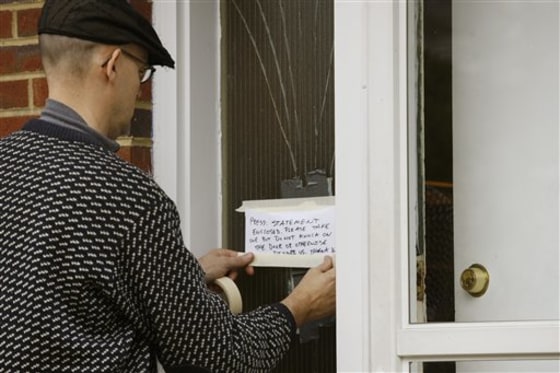 PRESS STATEMENT
ENCLOSED. PLEASE TAKE
ONE BUT DO NOT KNOCK ON
THE DOOR OR OTHERWISE
US. THANK